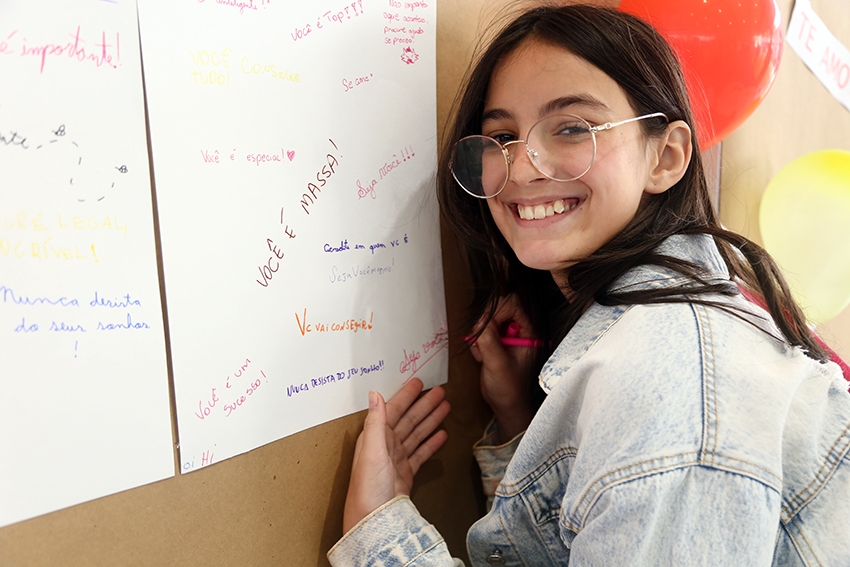 é importante!
Nunca desista
do seus sonhos
!
Você é Top!?!
Não importa
o que aconteça,
procure ajuda
se precisar
VOCÊ
TUDO!
CONSEGUE
Se ame
Você é especial!
VOCÊ É MASSA!
Seja você!!!
Acredite em quem vc é
Seja Você mesmo!
Vc vai conseguir!
Seja você
NUNCA DESISTA DO SEU SONHO!!
VOCÊ É UM
SUCESSO!
oi Hi
LEGAL,
INCRÍVEL!
TE AMO